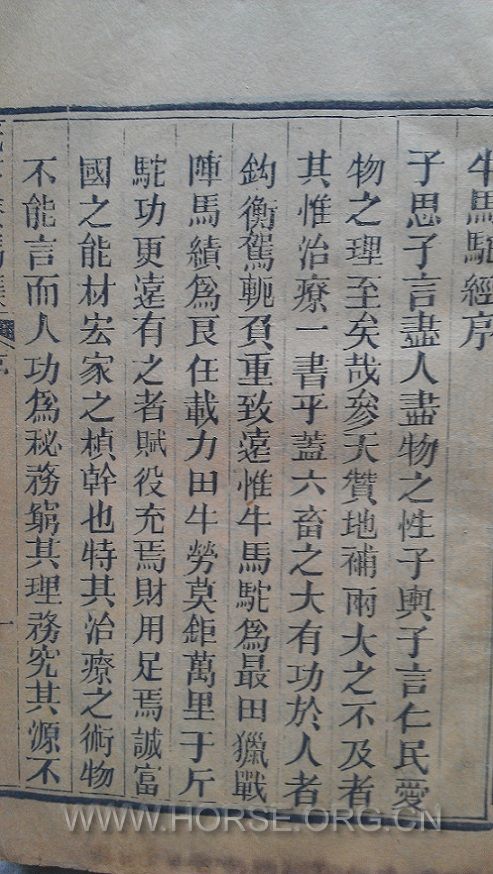 牛馬駝經序
子思子言盡人盡物之性子輿子言仁民愛
物之理至矣哉參天贊地補兩大之不及者
其惟治療一書乎蓋六畜之大有功於人者
鈎衡駕軛負重致遠惟牛馬駝爲最田獵戰
陣馬績爲良任載力田牛勞莫鉅萬里于斤
駝功更遠有之者賦役充焉財用足焉誠富
國之能材宏家之楨幹也特其治療之術物
不能言而人功爲秘務窮其理務究其源不
序
一
WWW.HORSE.ORG.CN